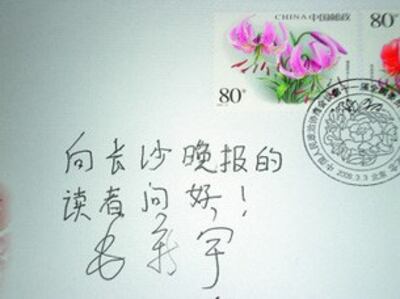 CHINA 中国邮政
80分
80
向长沙晚报的
读者问好!
毛新宇
2008.3.3 北京